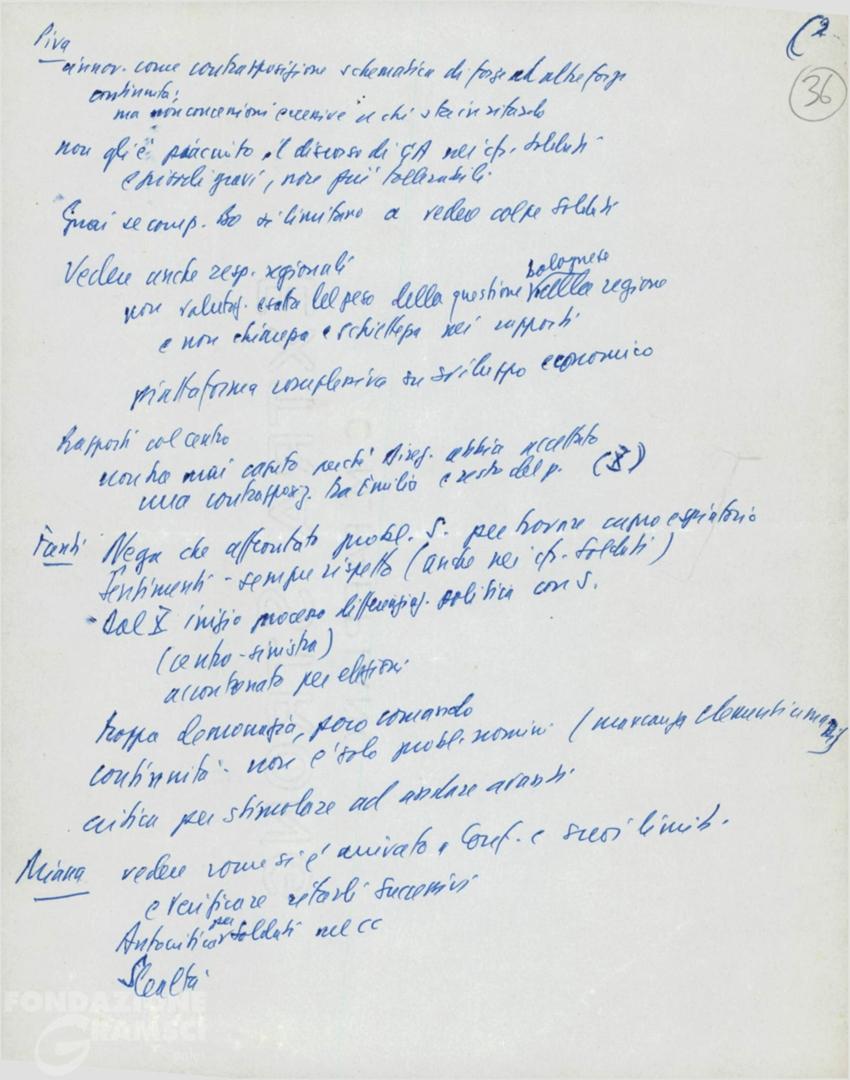 (2
36
Piva
innov. come contrapposizione schematica di forze ad altre forze
continuità;
ma non concessioni eccessive a chi sta in ritardo
non gli è piaciuto il discorso di GA nei cfr. Soldati
episodi gravi, non più tollerabili
Guai se comp. Bo si limitano a vedere colpe Soldati
Vedere anche resp. regionali
non valutaz. esatta del peso della questione bolognese nella regione
e non chiarezza e schiettezza nei rapporti
piattaforma complessiva su sviluppo economico
Rapporti col centro
non ha mai capito perché direz. abbia accettato
una contrapposiz. tra Emilia e resto del p. (X)
Fanti Nega che affrontato probl. S. per trovare capro espiatorio
Sentimenti - sempre rispetto (anche nei cfr. Soldati)
Dal X inizio processo differenziaz. politica con S.
(centro-sinistra)
accantonato per elezioni
troppa democrazia, poco comando
continuità - non è solo probl. uomini (mancanza elementi umani)
critica per stimolare ad andare avanti
Miana vedere come si è arrivati a Conf. e suoi limiti.
e verificare ritardi successivi
Autocritica per Soldati nel CC
Slealtà
FONDAZIONE
GRAMSCI